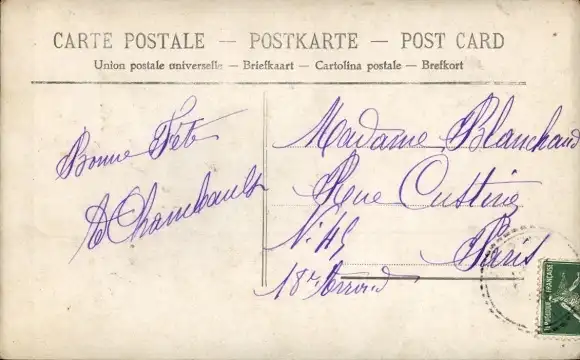 CARTE POSTALE — POSTKARTE — POST CARD
Union postale universelle — Briefkaart — Cartolina postale — Brefkort
Bonne Fête
Chambault
Madame Blanchard
Rue Custine
No 45
Paris
18e Arrond